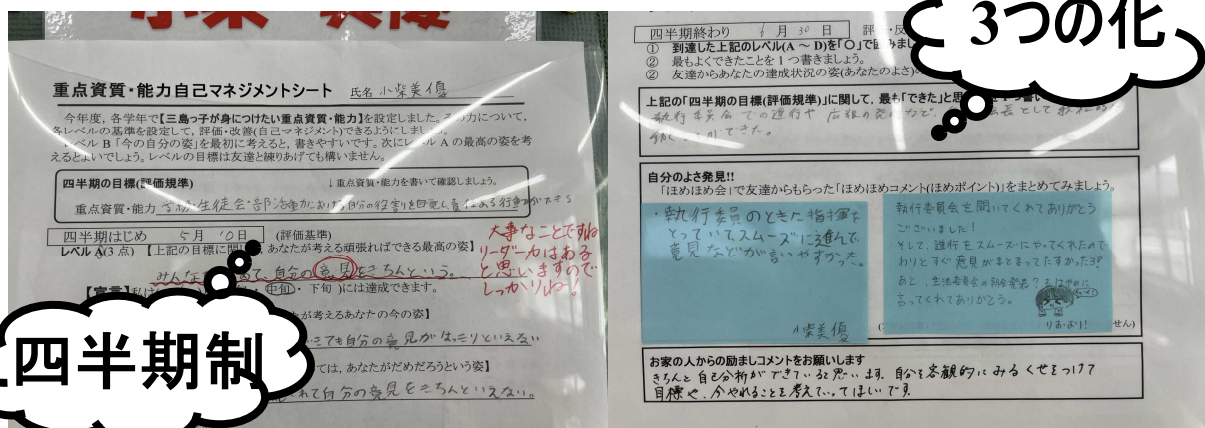 重点資質・能力自己マネジメントシート 氏名 小柴美優
今年度,各学年で【三島っ子が身につけたい重点資質・能力】を設定しました。その力について,
各レベルの基準を設定して,評価・改善(自己マネジメント)できるようにしまし
レベルB「今の自分の姿」を最初に考えると,書きやすいです。次にレベルAの最高の姿を考
えるとよいでしょう。レベルの目標は友達と練りあげても構いません。
四半期の目標(評価規準) ↓重点資質・能力を書いて確認しましょう。
重点資質・能力 学級・生徒会・部活動における自分の役割を自覚し責任ある行動ができる
四半期はじめ 5月10日 (評価基準)
レベルA(3点)【上記の目標に関し あなたが考える頑張ればできる最高の姿】
自分の意見をきちんという。
大事なことですね
リーダー力はある
と思いますので
しっかりね!
【宣言】私は 中旬・下旬)には達成できます。
が考えるあなたの今の姿】
ても自分の意見がはっきりといえない
ては,あなたがだめだろうという姿】
れて自分の意見をきちんといえない。
四半期制
3つの化
四半期終わり 6月30日 評
① 到達した上記のレベル(A～D)を「○」で囲みまし
② 最もよくできたことを1つ書きましょう。
② 友達からあなたの達成状況の姿(あなたのよさ)
上記の「四半期の目標(評価規準)」に関して,最も「できた」と思
執行委員会での進行や 長として
ができた。
自分のよさ発見!!
「ほめほめ会」で友達からもらった「ほめほめコメント(ほめポイント)」をまとめてみましょう。
・執行委員のときた指揮を
とっていてスムーズに進んで
意見などが言いやすかった。
小柴美優
執行委員会を開いてくれてありがとう
ございました!
そして、進行をスムーズにやってくれたので
わりとすぐ意見がまとまってたすかったヨ!
あと、生活委員会の
言ってくれてありがとう。
せん)
お家の人からの励ましコメントをお願いします
きちんと自己分析ができていると思います。自分を客観的にみるくせをつけて
目標や、今やれることを考えていってほしいです。